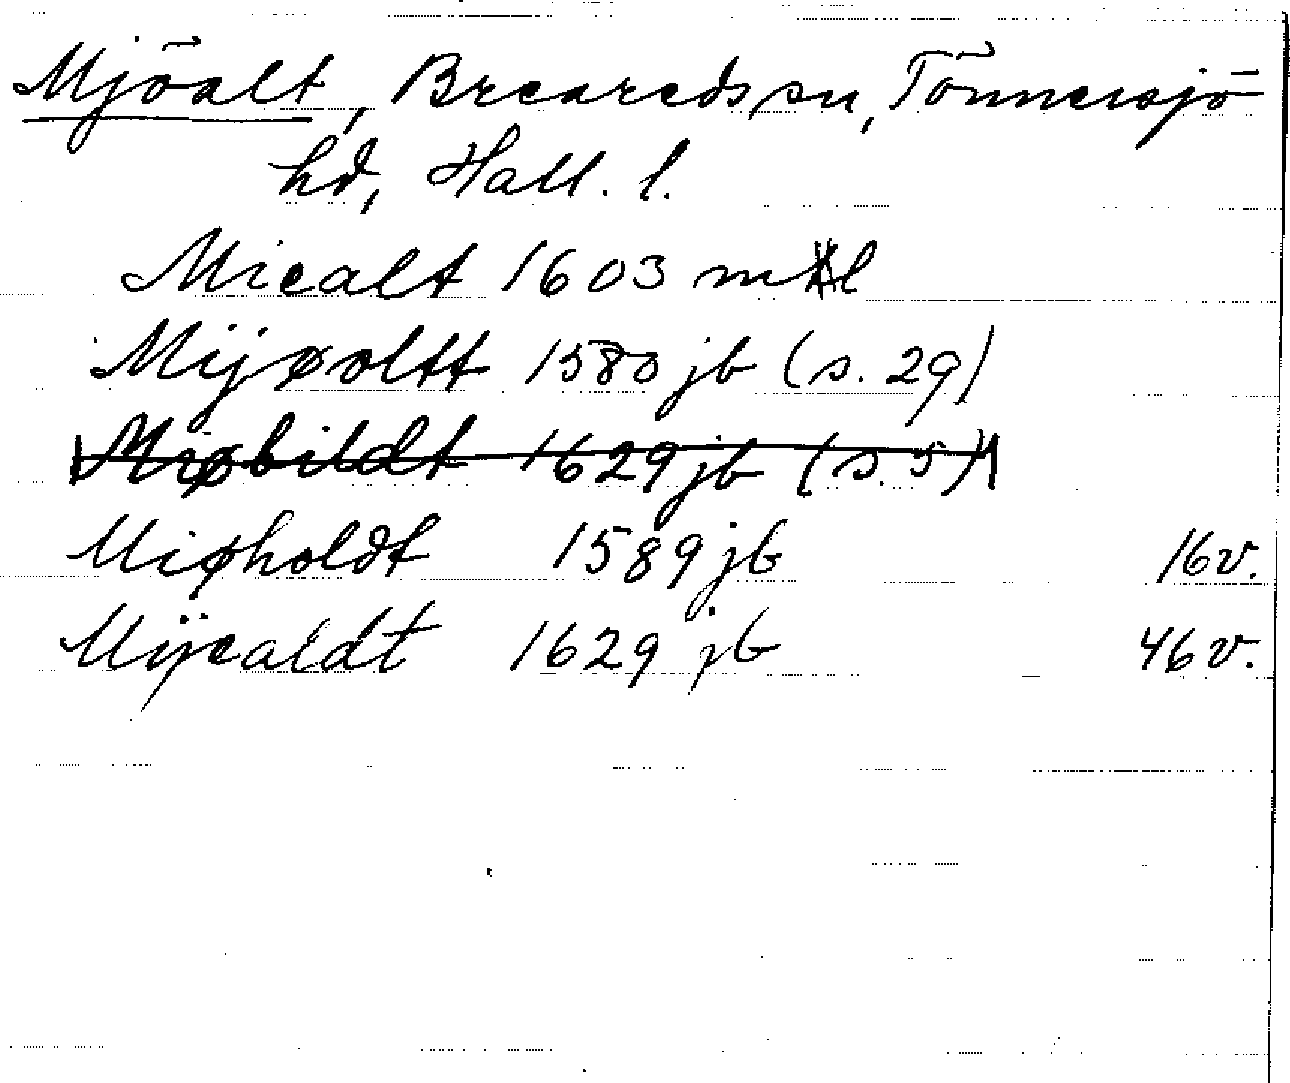 Mjöalt, Breareds sn, Tönnersjö
hd, Hall. l.
Miealt 1603 mtl
Mijøoltt 1580 jb (s. 29)
Miøbildt 1629 jb (s. 5)
Miøholdt 1589 jb 16v.
Mÿealdt 1629 jb 46v.